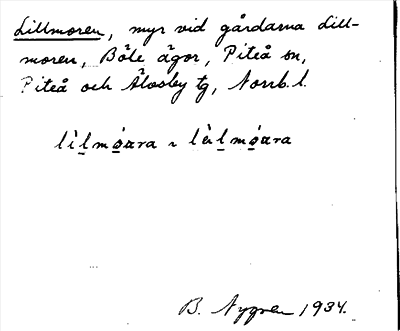 Lillmoren, myr vid gårdarna Lill-
moren, Böle ägor, Piteå sn,
Piteå och Älvsby tg, Norrb. l.
lìl̲mó̲ara ~ lèl̲mó̲ara
B. Nygren 1934.